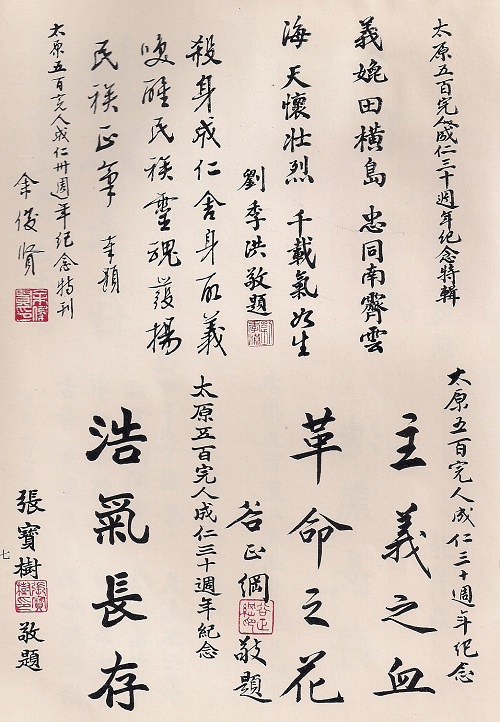 太原五百完人成仁三十週年紀念特輯
義媲田橫島 忠同南霽雲
海天懷壯烈 千載氣如生
劉季洪敬題
殺身成仁舍身取義
喚醒民族靈魂發揚
民族正氣 奉題
太原五百完人成仁卅週年紀念特刊
余俊賢
太原五百完人成仁三十週年紀念
主義之血
革命之花
谷正綱敬題
太原五百完人成仁三十週年紀念
浩氣長存
張寶樹敬題
七